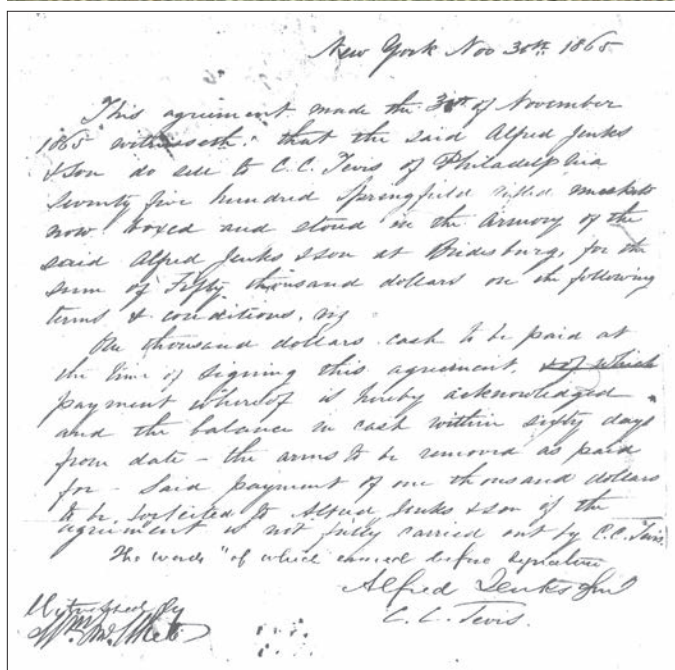 New York Nov 30th 1865
This agreement made the 30th of November
1865 witnesseth: that the said Alfred Jenks
& Son do sell to C.C. Tevis of Philadelphia
Seventy five hundred Springfield rifled muskets
now boxed and stored in the Armory of the
said Alfred Jenks & son at Bridesburg, for the
sum of Fifty thousand dollars on the following
terms & conditions, viz
One thousand dollars cash to be paid at
the time of signing this agreement, & of which
payment whereof is hereby acknowledged
and the balance in cash within sixty days
from date – the arms to be removed as paid
for – Said payment of one thousand dollars
to be forfeited to Alfred Jenks & son if the
agreement is not fully carried out by C.C. Tevis.
The words "of which erased before signature
Alfred Jenks & Son
C. C. Tevis.
Witnessed by